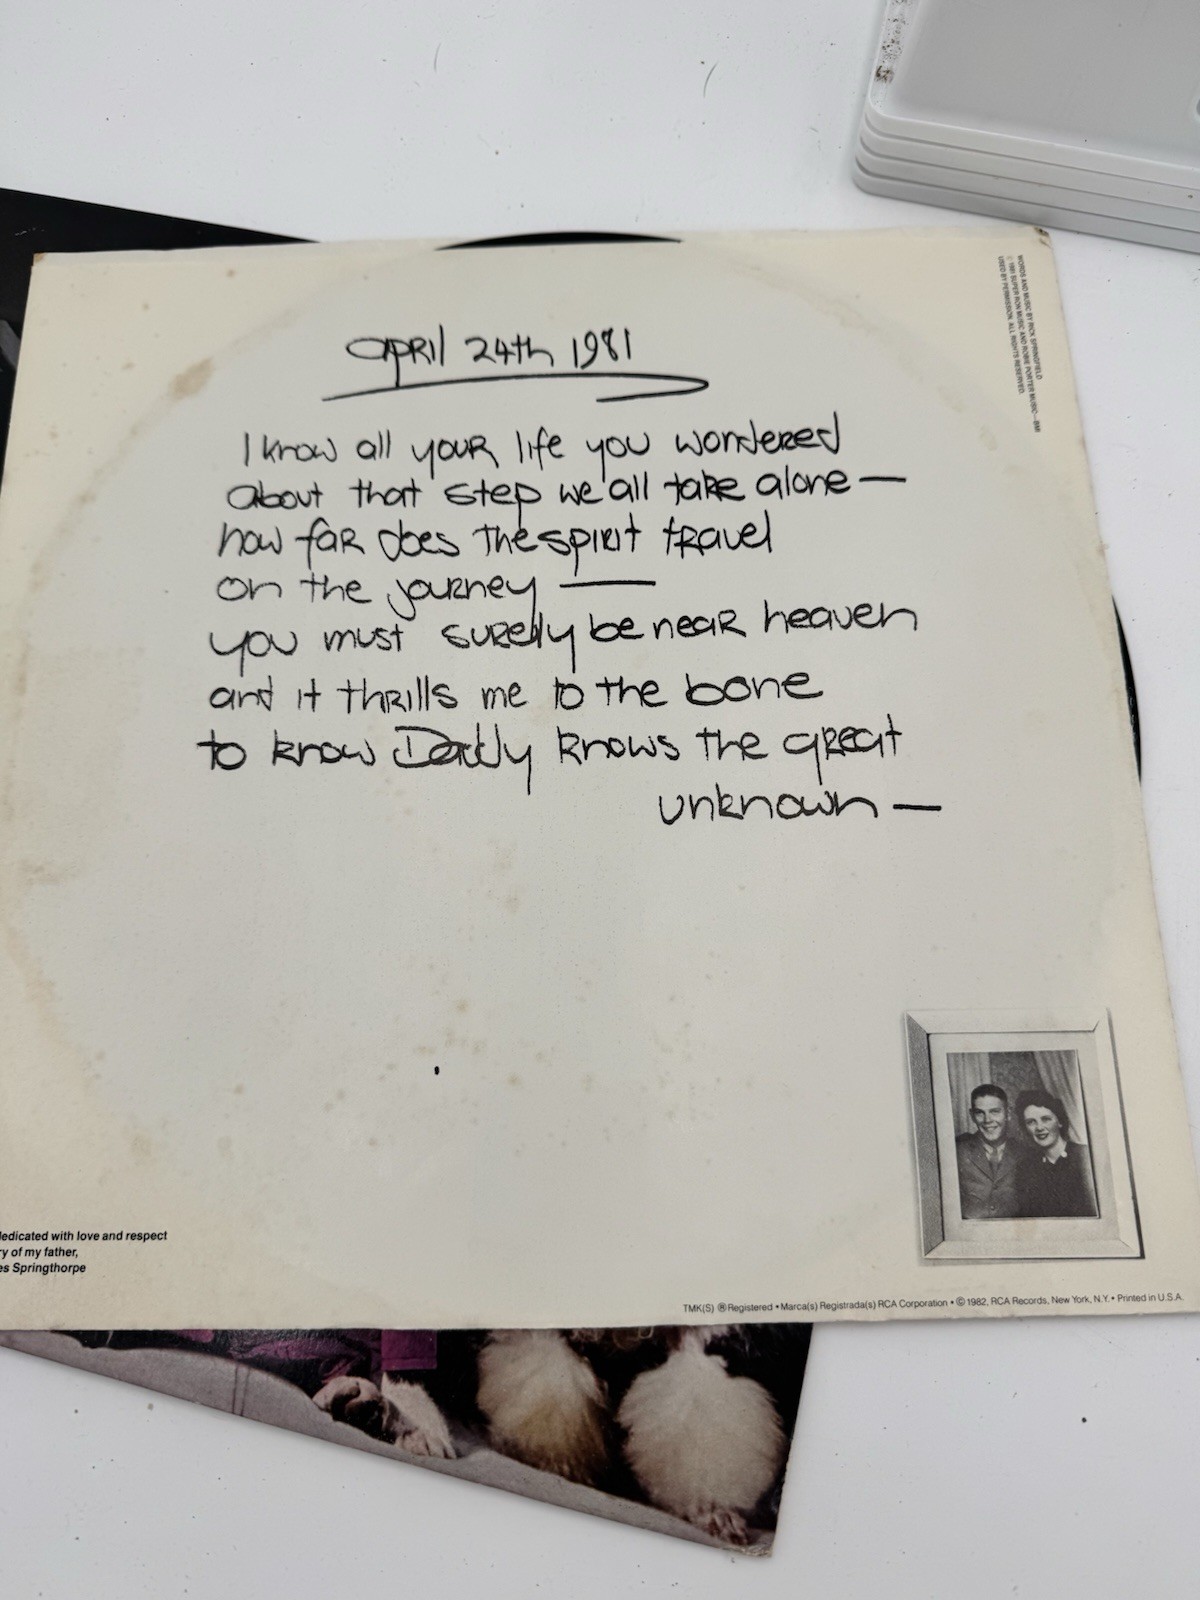 WORDS AND MUSIC BY RICK SPRINGFIELD
© 1981 SUPER RON MUSIC AND ROBIE PORTER MUSIC—BMI
USED BY PERMISSION. ALL RIGHTS RESERVED.
APRIl 24th 1981
I know all youR life you wondeRed
about that step we all take alone —
how faR does the spiRit tRavel
on the jouRney —
you must suRely be neaR heaven
and it thRills me to the bone
to know Daddy knows the gReat
unknown —
dedicated with love and respect
ry of my father,
es Springthorpe
TMK(S) ® Registered • Marca(s) Registrada(s) RCA Corporation • © 1982, RCA Records, New York, N.Y. • Printed in U.S.A.